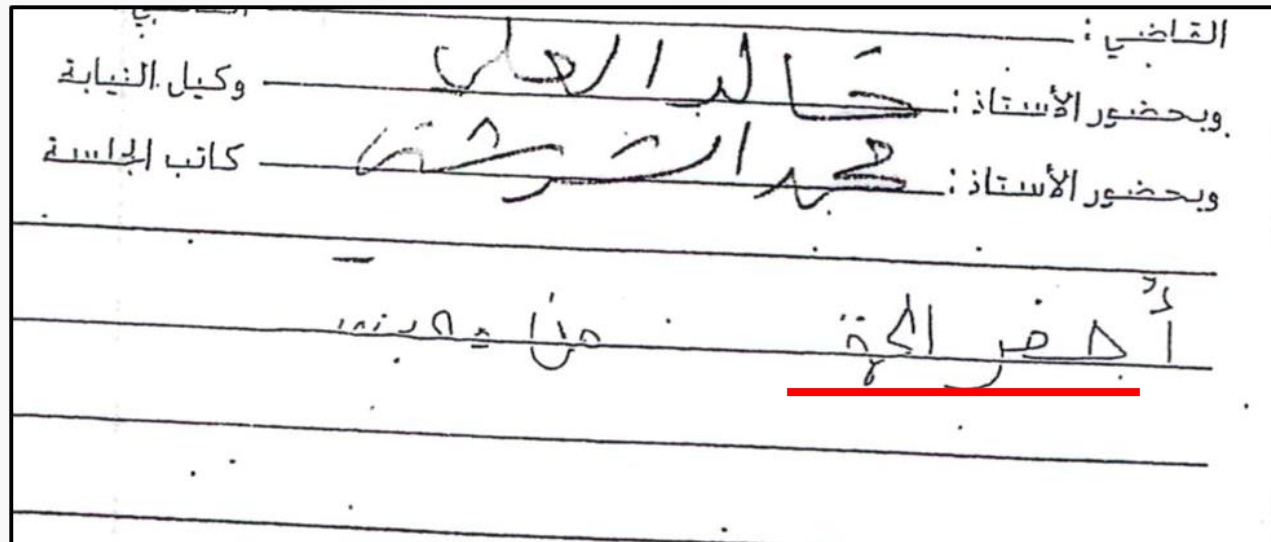 القاضي :
وبحضور الأستاذ : خالد العلي وكيل النيابة
وبحضور الأستاذ : محمد كاتب الجلسة
أحضر المتهم من